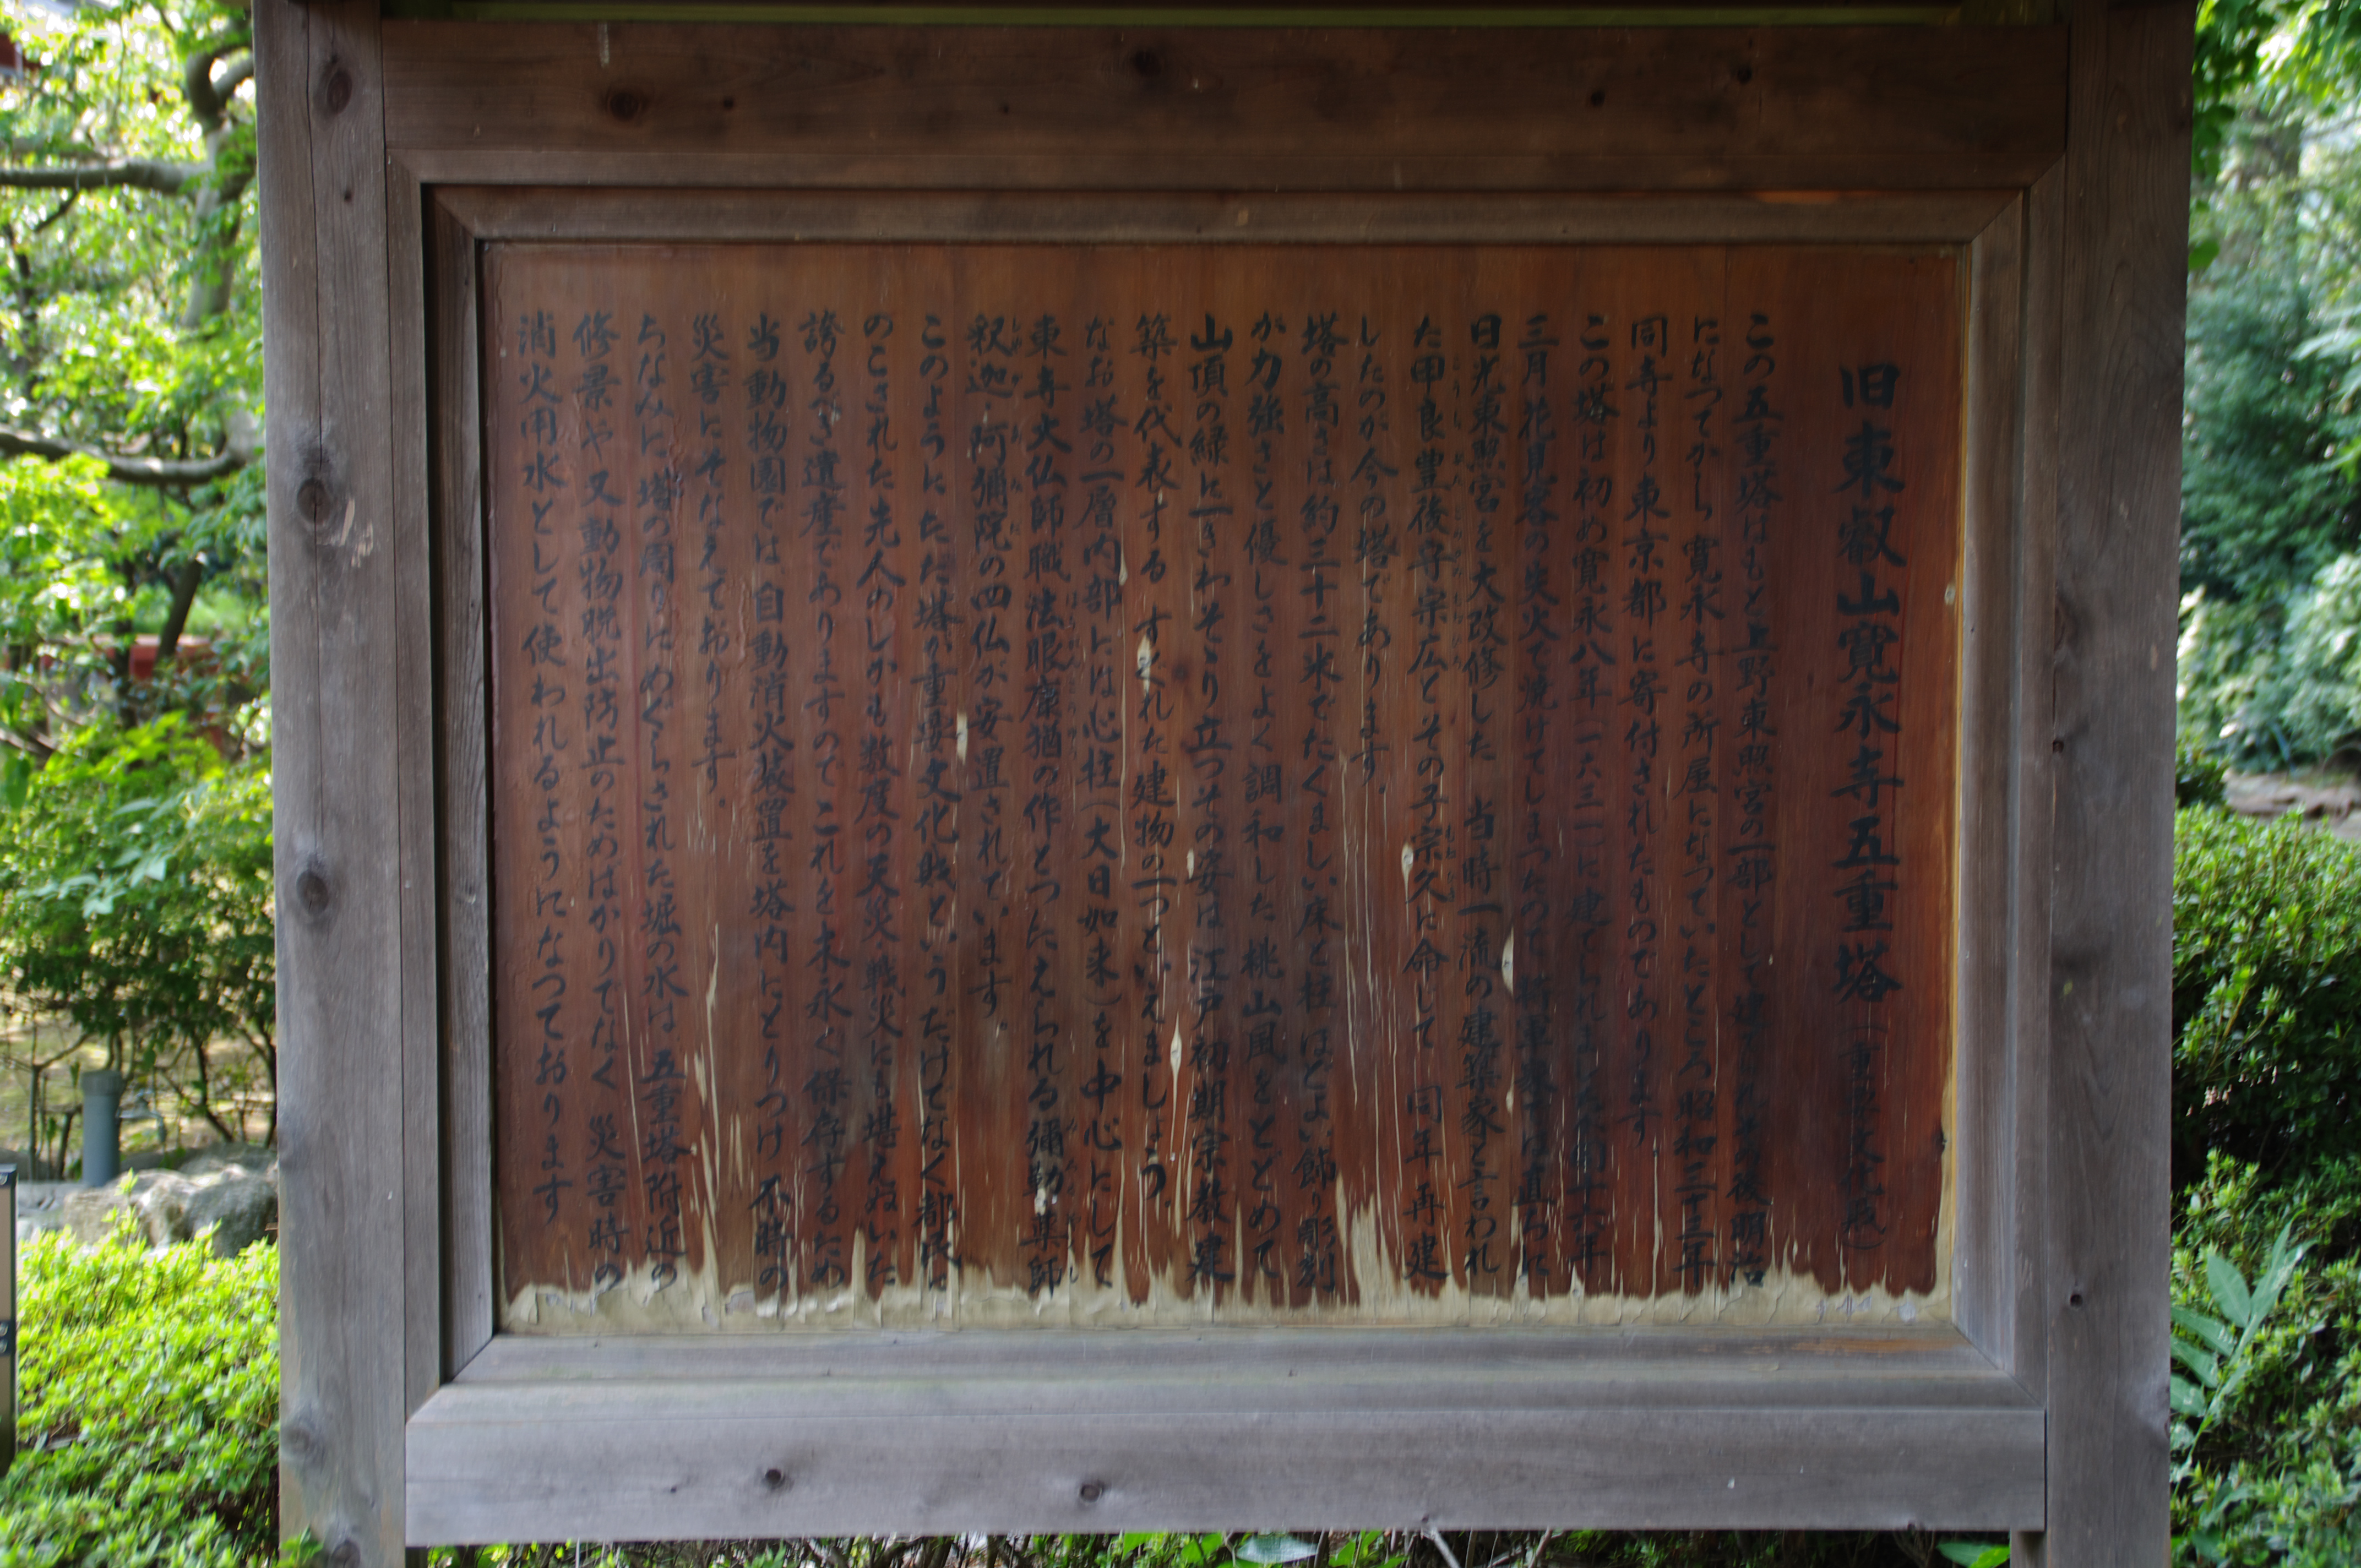 旧東叡山寛永寺五重塔（重要文化財）
この五重塔はもと上野東照宮の一部として建その後明治
になつてから寛永寺の所属になっていたところ昭和三十三年
同寺より東京都に寄付されたものであります
この塔は初め寛永八年（一六三一）に建てられまし十六年
三月花見客の失火で焼けてしまつたので将軍家では直ちに
日光東照宮を大改修した 当時一流の建築家と言われ
た甲良豊後守宗広とその子宗久に命じて 同年再建
したのが今の塔であります。
塔の高さは約三十二米でたくましい床と柱ほどよい飾り彫刻
が力強さと優しさをよく調和した桃山風をとどめて
山頂の緑に一きわそゝり立つその姿は江戸初期宗教建
築を代表する すぐれた建物の一つといえましょう。
なお塔の一層内部には心柱（大日如来）を中心にして
東寺大仏師職法眼康猶の作とつたえられる彌勒薬師
釈迦 阿彌陀の四仏が安置されています。
このようにただ塔が重要文化財というだけでなく都民に
のこされた先人のしかも数度の天災・戦災にも堪えぬいた
誇るべき遺産でありますのでこれを末永く保存するため
当動物園では自動消火装置を塔内にとりつけ 不時の
災害にそなえております。
ちなみに塔の周りにめぐらされた堀の水は 五重塔附近の
修景や又動物脱出防止のためばかりでなく 災害時の
消火用水として使われるようになつております